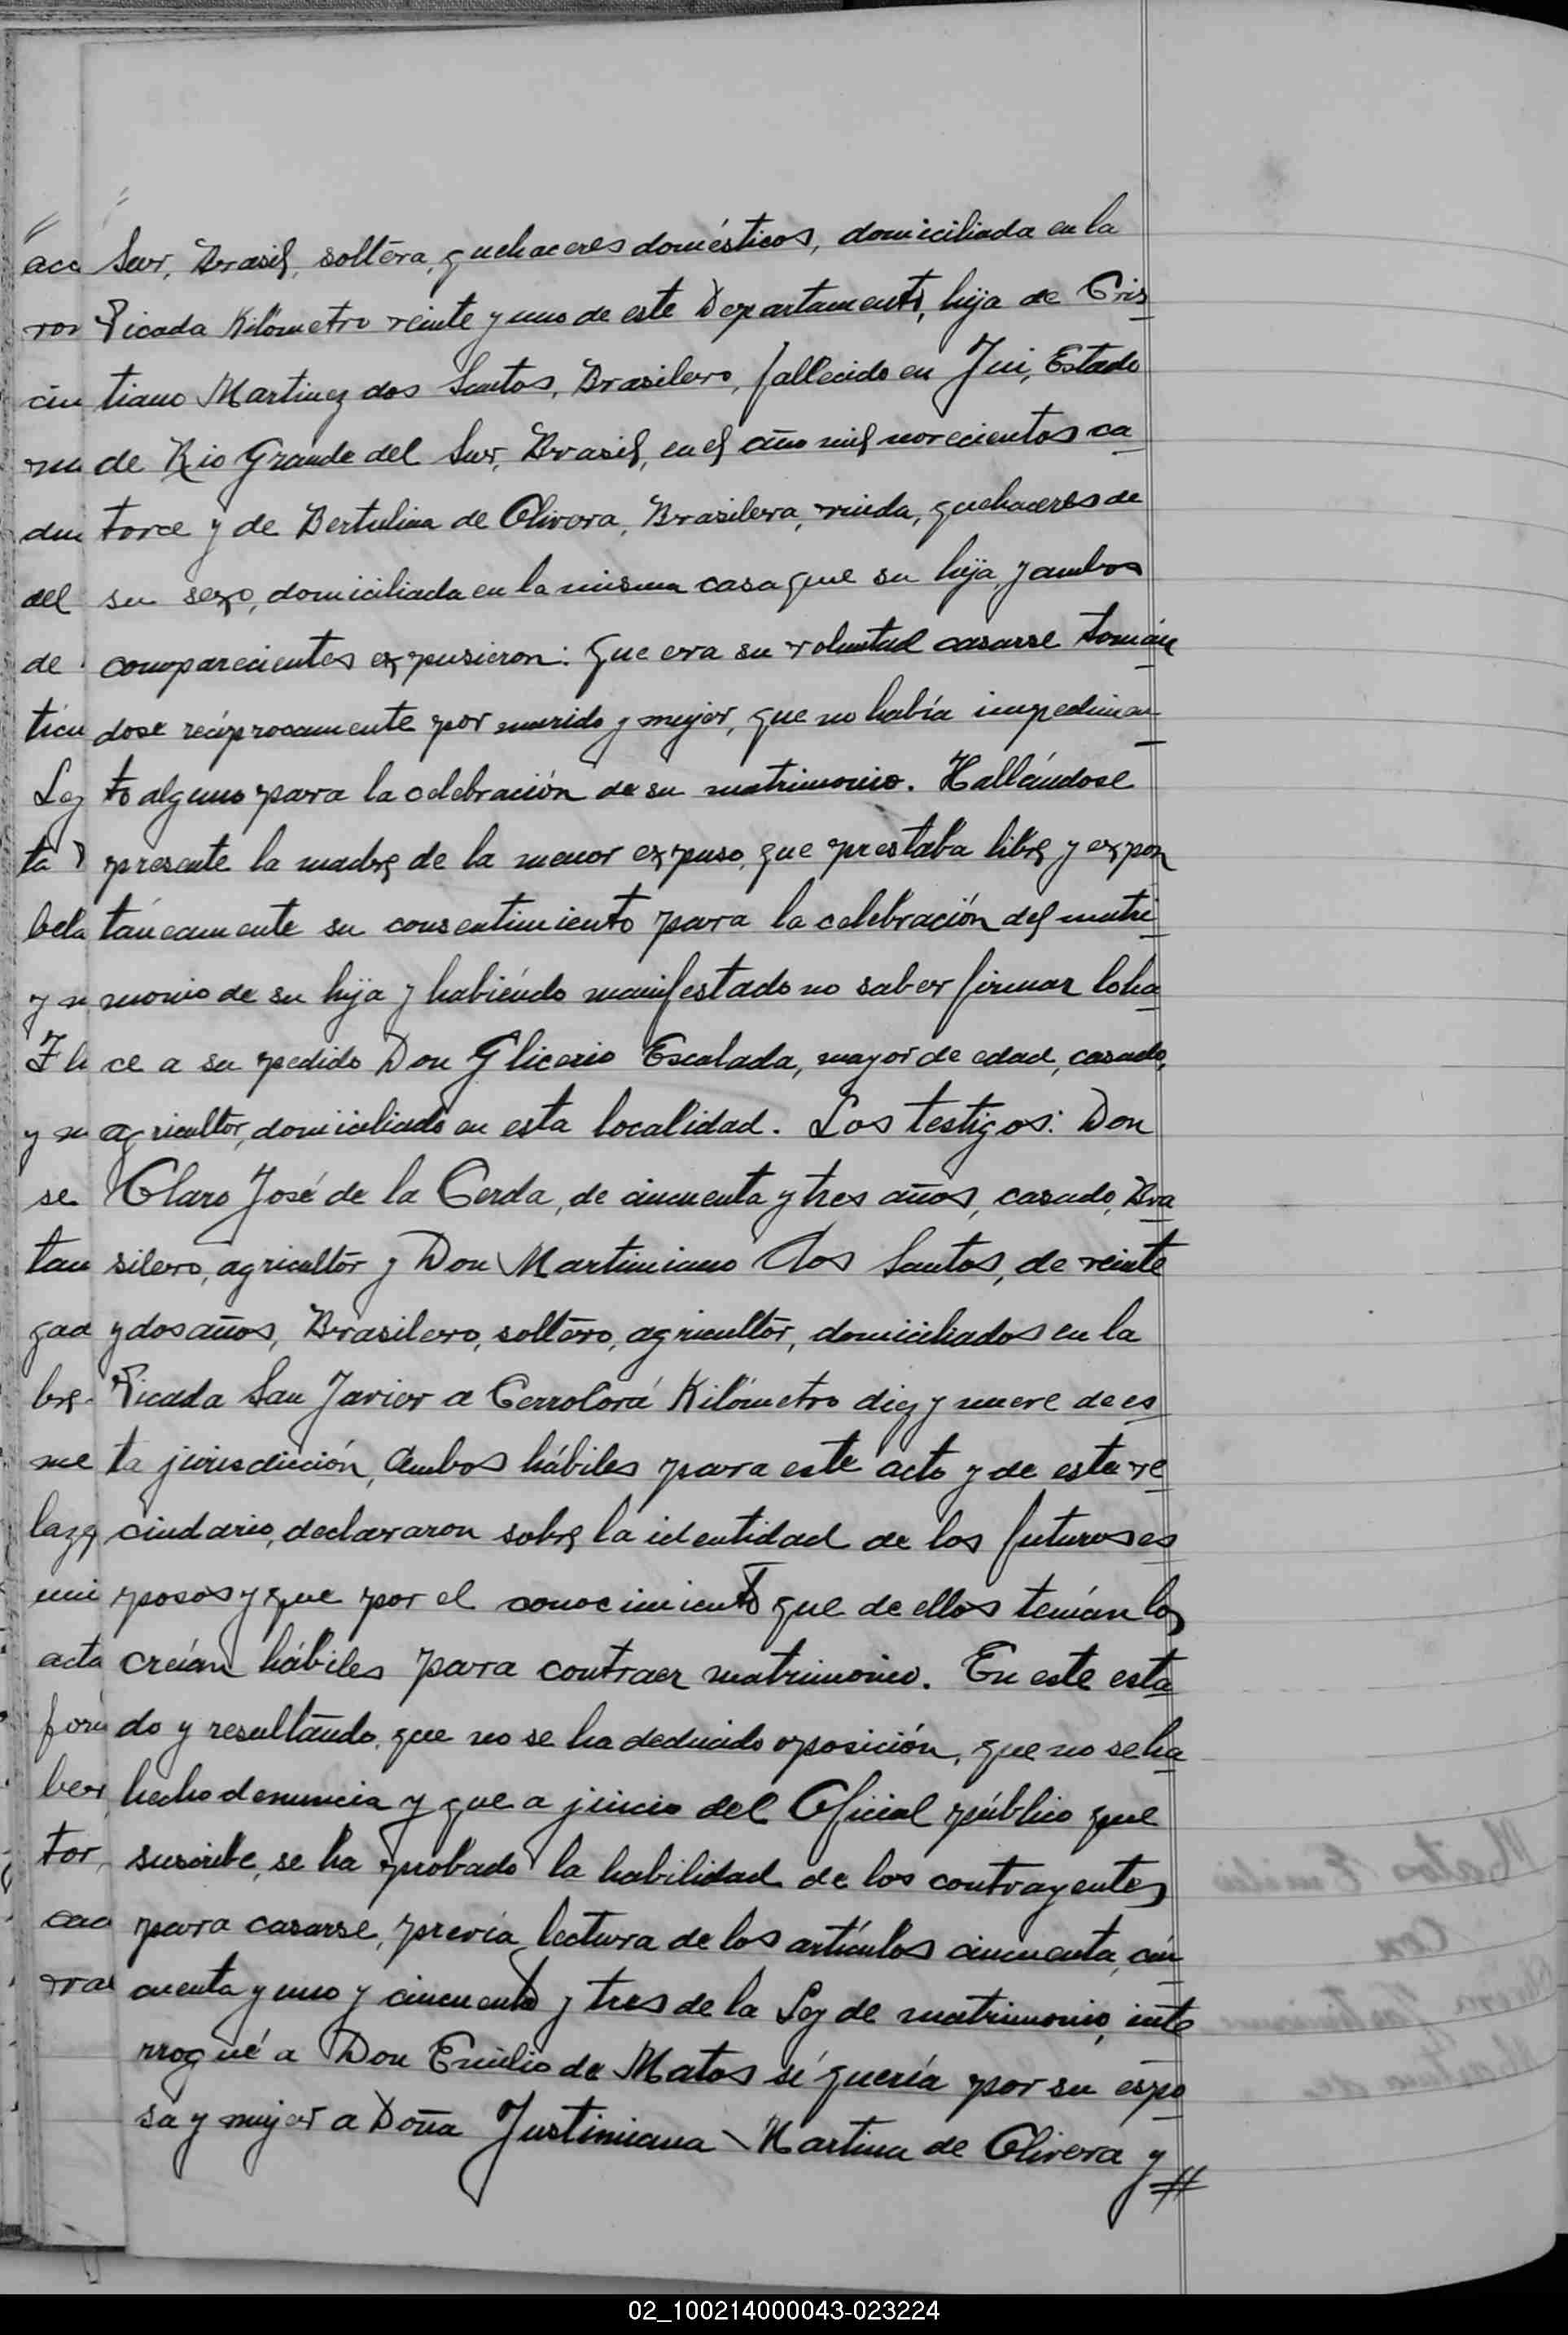 Sur, Brasil, soltera, quehaceres domésticos, domiciliada en la
Picada Kilómetro veinte y uno de este Departamento, hija de Cris
tiano Martinez dos Santos, Brasilero, fallecido en Jui, Estado
de Rio Grande del Sur, Brasil, en el año mil novecientos ca
torce y de Bertulina de Olivera, Brasilera, viuda, quehaceres de
su sexo, domiciliada en la misma casa que su hija, y ambos
comparecientes expusieron: que era su voluntad casarse tomán
dose recíprocamente por marido y mujer, que no había impedimen
to alguno para la celebración de su matrimonio. Hallándose
presente la madre de la menor expuso, que prestaba libre y expon
táneamente su consentimiento para la celebración del matri
monio de su hija y habiéndo manifestado no saber firmar lo ha
ce a su pedido Don Glicerio Escalada, mayor de edad, casado,
agricultor, domiciliado en esta localidad. Los testigos: Don
Claro José de la Cerda, de cincuenta y tres años, casado, Bra
silero, agricultor y Don Martiniano dos Santos, de veinte
y dos años, Brasilero, soltero, agricultor, domiciliados en la
Picada San Javier a Cerro Corá Kilómetro diez y nueve de es
ta jurisdicción, Ambos hábiles para este acto y de este ve
cindario, declararon sobre la identidad de los futuros es
posos y que por el conocimiento que de ellos tenían los
creían hábiles para contraer matrimonio. En este esta
do y resultando, que no se ha deducido oposición, que no se ha
hecho denuncia y que a juicio del Oficial público que
suscribe, se ha probado la habilidad de los contrayentes
para casarse, previa lectura de los artículos cincuenta, cin
cuenta y uno y cincuenta y tres de la Ley de matrimonio, inte
rrogué a Don Emilio de Matos sí quería por su espo
sa y mujer a Doña Justiniana Martina de Olivera y
02_100214000043-023224